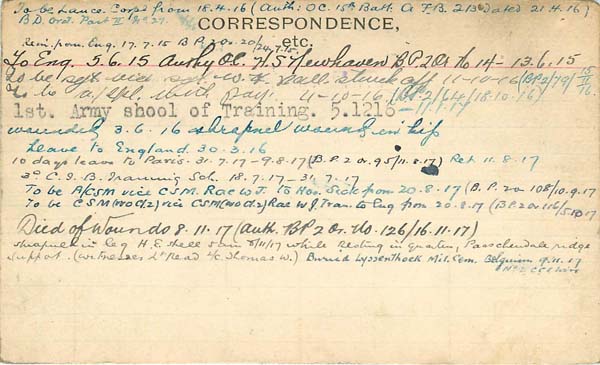 To be Lance Corpl from 18.4.16 (Auth: OC. 15th Batt. A.F.B. 213 dates 21.4.16)
B.D. Ord. Part II No 27.
CORRESPONDENCE,
etc.
from Eng. 17.7.15 B.P.2 Or. 20/24.7.15
To Eng. 5.6.15 Authy OC. H/S Newhaven B.P.2 Or No 14 - 13.6.15
To be Sgt vice Sgt struck off 11-10-16 (BP2/79/
To be a/Cpl. with pay. 4-10-16 (BP2/64/18.10.16)
1st. Army shool of Training. 5.1216 - 11-1-17
wounded 3.6.16 shrapnel wound in hip
Leave to England. 30.3.16
10 days leave to Paris. 31.7.17-9.8.17 (B.P.2 or. 95/11.8.17) Ret. 11.8.17
3rd C.I.B. Training Sch. 18.7.17 - 31.7.17
To be A/CSM vice C.S.M. Rae W.J. to Hos. Sick from 20.8.17 (B.P. 2 or 108/10.9.17
To be C.S.M (WO Cl 2) vice CSM (WO Cl 2) Rae W.J. Tran. to Eng from 20.8.17 (B.P.2 or 116/5.10.17
Died of Wounds 8.11.17 (Auth. B.P.2 Or. No. 126/16.11.17)
shrapnel in leg H.E. shell 5 am 8/11/17 while Resting in quarters, Passchendale ridge
support. (witnesses Lt Read L/C Thomas W.) Buried Lyssenthoek Mil. Cem. Belguim 9.11.17